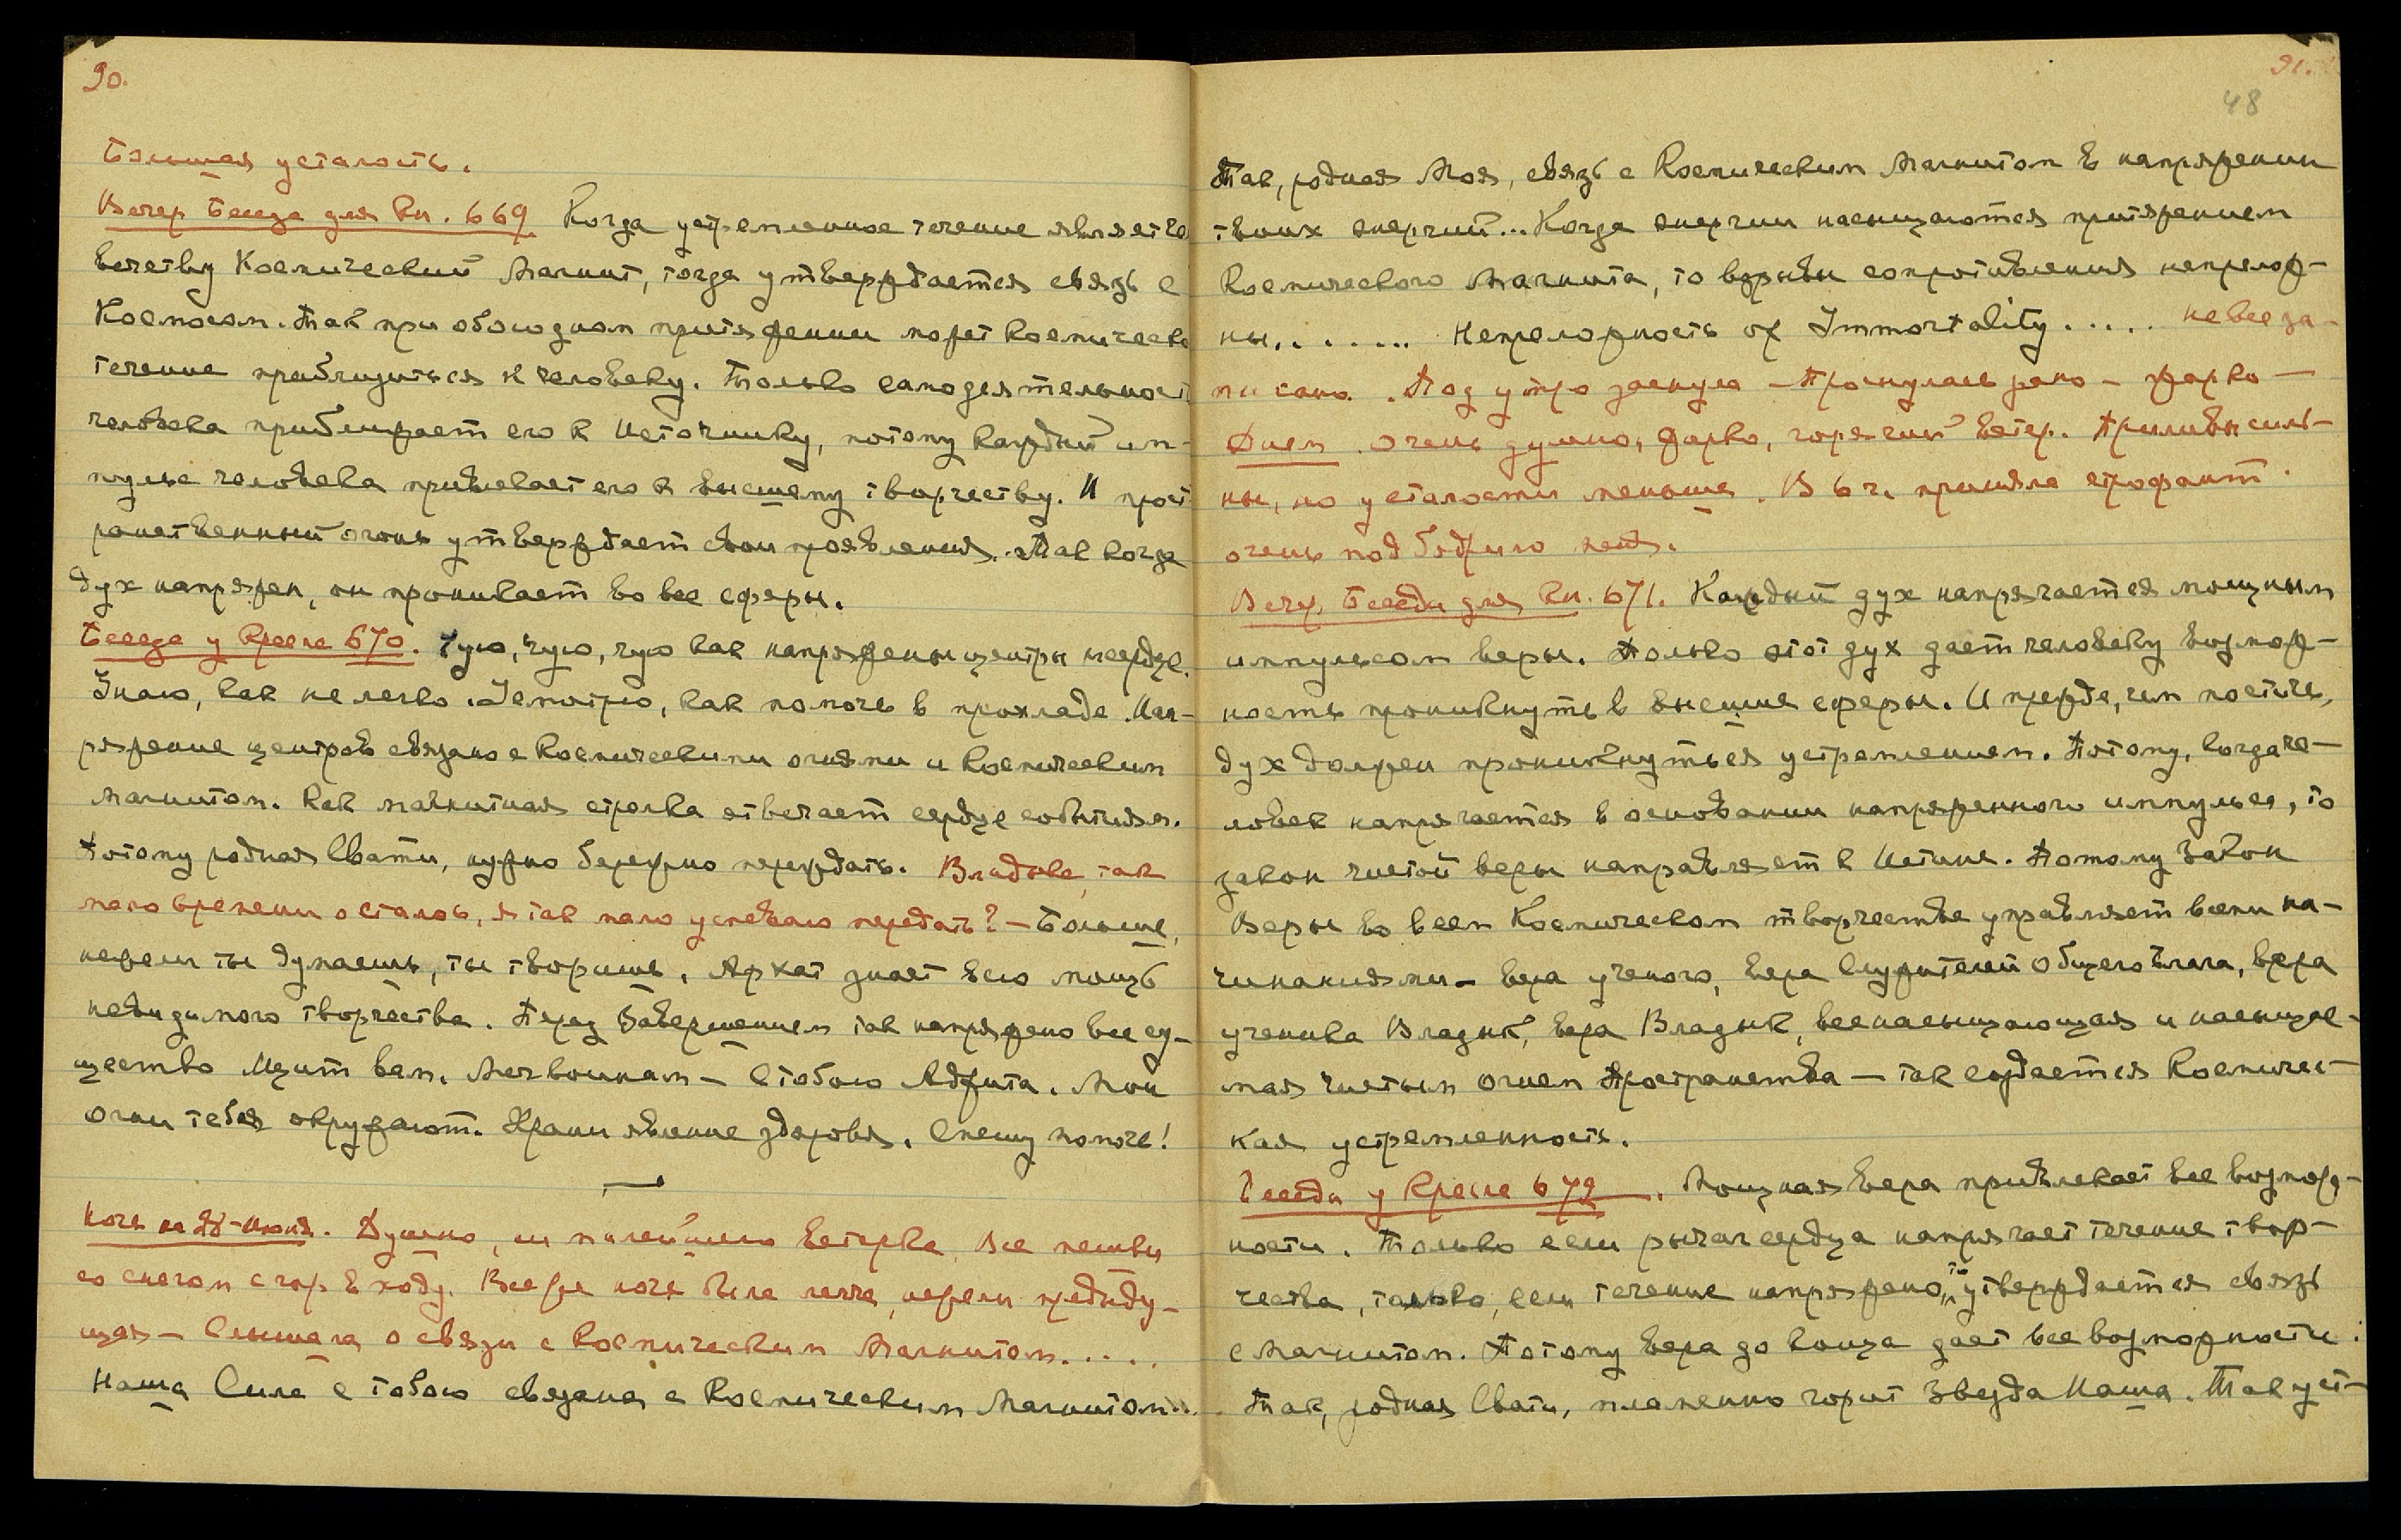 90.
Большая усталость.
Вечер Беседа для Кн. 669 Когда устремленное течение являет че
вечеству Космический Магнит, тогда утверждается связь с
Космосом. Так при обоюдном притяжении может Космическ
течение приблизиться к человеку. Только самодеятельност
человека приближает его к Источнику, потому каждый им-
пульс человека привлекает его к высшему творчеству. И прост
ранственный огонь утверждает свои проявления. Так когда
дух напряжен, он проникает во все сферы.
Беседа у Кресла 670. Чую, чую, чую как напряжены центры и сердце.
Знаю, как не легко. Смотрю, как помочь в прохладе. Нап-
ряжение центров связано с Космическими огнями и Космическим
Магнитом. Как магнитная стрелка отвечает сердце событиям.
Потому родная Свати, нужно бережно переждать. Владыка, так
мало времени осталось, я так мало успеваю передать? — Больше,
нежели ты думаешь, ты творишь. Архат знает всю мощь
невидимого творчества. Перед Завершением так напряжено все су-
щество Мучит вам. Меч воинам — С тобою Аджита. Мои
огни тебя окружают. Храни явление здоровья. Спешу помочь!
Ночь на 28-Июня. Душно, ни малейшего ветерка. Все мешки
со снегом с гор в ходу. Все же ночь была легче, нежели предыду-
щая — Слышала о связи с Космическим Магнитом.....
Наша Сила с тобою связана с Космическим Магнитом...
91.
48
Так, родная Моя, связь с Космическим Магнитом в напряжении
твоих энергий... Когда энергии насыщаются притяжением
Космического Магнита, то взрывы сопротивления непрелож-
ны........ Непреложность of Immortality..... не все за-
писано. Под утро заснула — Проснулась рано — жарко —
Днем. Очень душно, жарко, горячий ветер. Приливы силь-
ны, но усталости меньше. В 6 ч. приняла строфант.
очень подбодрило
Вечер. Беседы для Кн. 671. Каждый дух напрягается мощным
импульсом веры. Только этот дух дает человеку возмож-
ность проникнуть в высшие сферы. И прежде, чем постичь,
дух должен проникнуться устремлением. Потому, когда че-
ловек напрягается в основании напряженного импульса, то
закон чистой веры направляет к Истине. Потому Закон
Веры во всем Космическом творчестве управляет всеми на-
чинаниями — вера ученого, вера Служителей Общего Блага, вера
ученика Владык, вера Владык, всенасыщающая и насыщае-
мая чистым огнем Пространства — так создается Космичес-
кая устремленность.
Беседы у Кресла 672. Мощная вера привлекает все возмож-
ности. Только если рычаг сердца напрягает течение твор-
чества, только, если течение напряжено, то утверждается связь
с Магнитом. Потому вера до конца дает все возможности.
Так, родная Свати, пламенно горит Звезда Наша. Так уст-